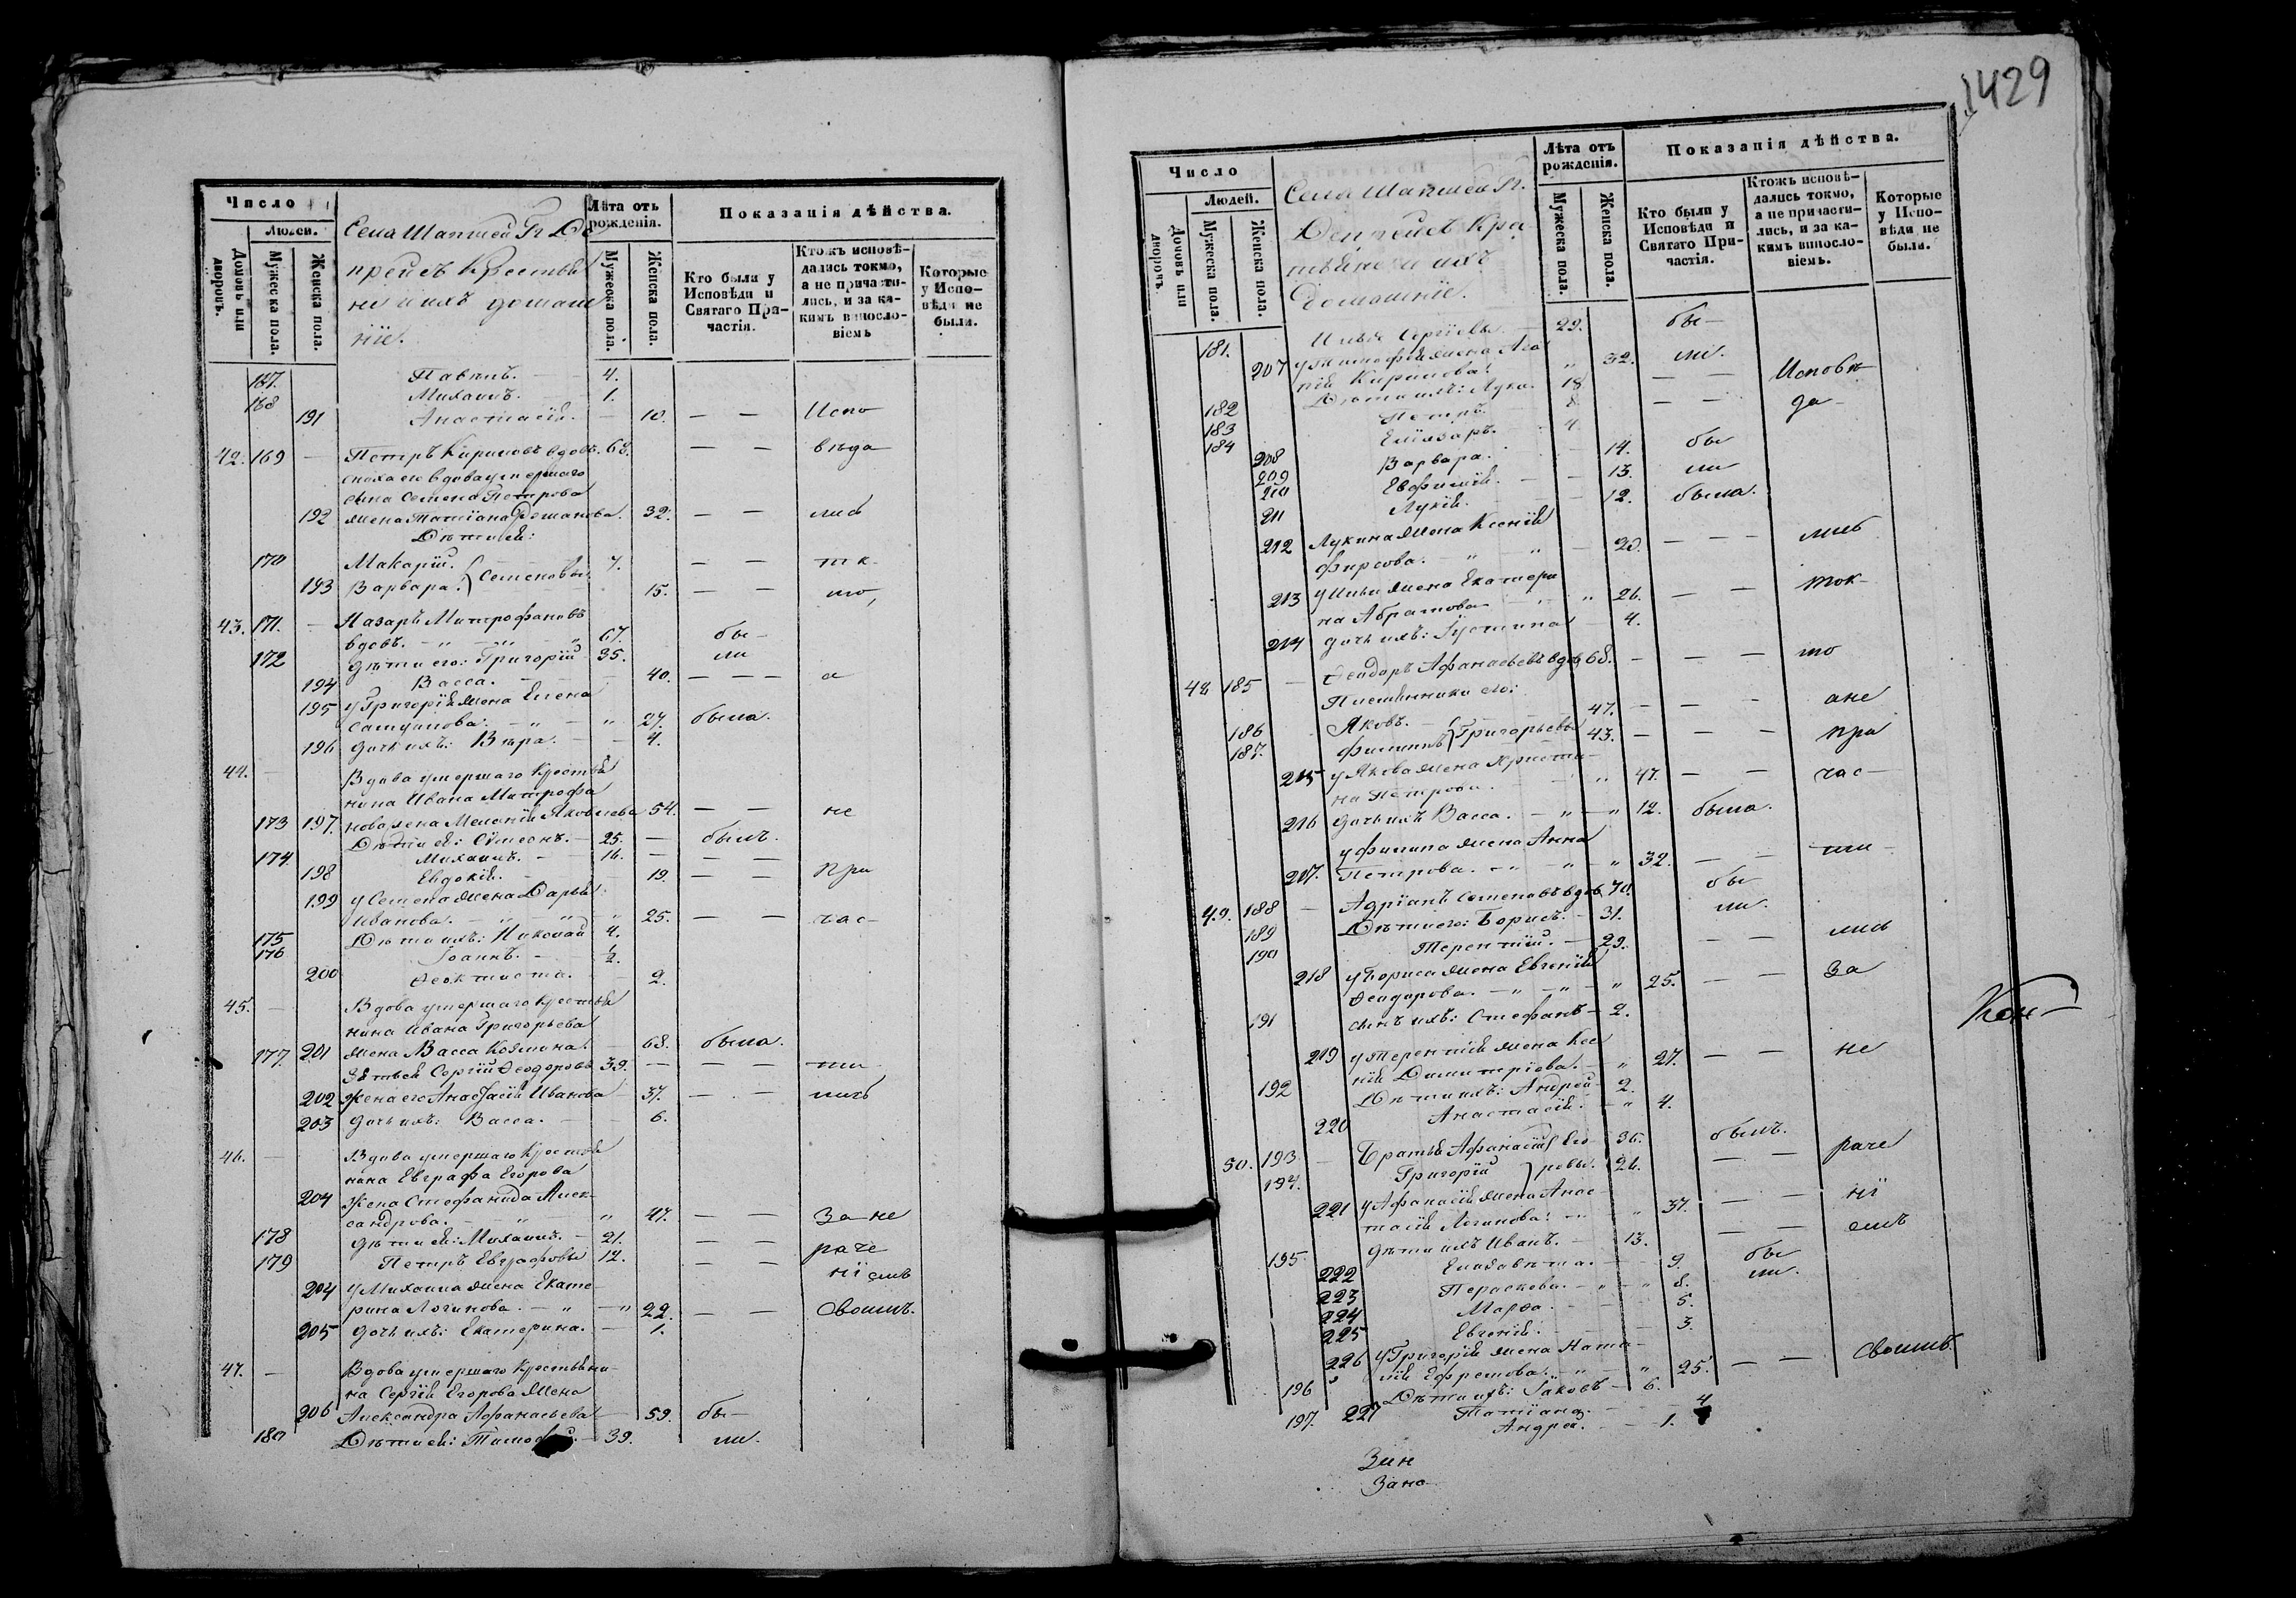 1429
Число
Людей.
Домовъ или дворовъ.
Мужеска пола.
Женска пола.
Села Шапшей Гг. Де
прейсъ Крестья
не и ихъ домаш
ніе.
Лѣта отъ рожденія.
Мужеска пола.
Женска пола.
Показанія дѣйства.
Кто были у Исповѣди и Святаго Причастія.
Ктожъ исповѣдались токмо, а не причастились, и за какимъ винословіемъ
Которые у Исповѣди не были.
167. Павелъ. 4.
168 Михаилъ. 1.
191 Анастасія. 10. — — Испо
42. 169 — Петръ Кириловъ вдовъ. 68. — — вѣда
сноха его вдова умершаго
сына Семена Петрова
192 жена Татіана Романова. 32. — — лись
Дѣти ея:
170 Макарій. 7. — — тк
193 Варвара. } Семеновы 15. — — мо,
43. 171. — Назаръ Митрофановъ
вдовъ. 67. бы-
172 дѣти его: Григорій 35. ли
194 Васса. 40. — — — а
195 у Григорія жена Елена
27. была.
196 дочь ихъ: Вѣра. 4.
44. — Вдова умершаго Крестья
нина Ивана Митрофа
173 197. нова жена Меланія Яковлева 54. — — не
Дѣти ея: Симеонъ. 25. — былъ.
174. Михаилъ. 16. — — —
198 Евдокія. 19. — — при
199 у Семена жена Дарья
Иванова. 25. — — час-
175 Дѣти ихъ: Николай 4.
176 Іоаннъ. ½.
200 Ѳеоктиста. 2.
45. — Вдова умершаго Крестья
нина Ивана Григорьева
177. 201 жена Васса Козмина 68. была.
Зять ея Сергій Ѳеодоровъ 39. — — — ти
202 Жена его Анастасія Иванова 37. — — лись
203 дочь ихъ: Васса. 6.
46. — Вдова умершаго Крестья
нина Евграфа Егорова
204 Жена Стефанида Алек-
сандрова. 47. — — За не
178 дѣти ея: Михаилъ. 21. — — раче
179 Петръ Евграфовы 12. — — ніемъ
204 У Михаила жена Екате-
рина Логинова. 22. — — своимъ.
205 дочь ихъ: Екатерина. 1.
47. — Вдова умершаго Крестьяни-
на Сергія Егорова Жена
206 Александра Афанасьева 59. бы-
180 Дѣти ея: Тимофей. 39. ли.
Число
Людей.
Домовъ или дворовъ.
Мужеска пола.
Женска пола.
Села Шапшей Гг.
Депрейсъ Кре
стьяне и ихъ
домашніе.
Лѣта отъ рожденія.
Мужеска пола.
Женска пола.
Показанія дѣйства.
Кто были у Исповѣди и Святаго Причастія.
Ктожъ исповѣдались токмо, а не причастились, и за какимъ винословіемъ.
Которые у Исповѣди не были.
181. Илья Сергіевы 29. бы-
207 у Тимофея жена Ага
пія Кирилова. 32. ли.
182 Дѣти ихъ: Лука. 18 — — Исповѣ
183 Петръ. 8. — — да-
184 Еліазаръ. 4.
208 Варвара. 14. бы
209 Евфимія. 13. ли
210
211 Лукія. 12. была.
212 Лукина жена Ксенія
Фирсова. 20. — — — лись
213 у Ильи жена Екатери
на Абрамова 26. — — ток-
214 дочь ихъ: Іустина 4.
48 185 — Ѳеодоръ Афанасьевъ вдов. 68. — — — мо
Племянники его:
186 Яковъ. 47. — — — а не
187. Филиппъ } Григорьевы 43. — — — при
215 у Якова жена Христи-
на Петрова. 47. — — час-
216 дочь ихъ Васса. 12. была.
у Филипа жена Анна
217. Петрова. 32. — — ти-
49. 188 — Адріанъ Семеновъ вдов. 70. бы
189 Дѣти его: Борисъ. 31. ли.
190 Терентій. 29. — — лись
218 у Бориса жена Евгенія
Ѳеодорова. 25. — — за
191 сынъ ихъ: Стефанъ 2.
219 у Терентія жена Ксе
нія Димитріева. 27. — — не
192 Дѣти ихъ: Андрей 2.
220 Анастасія. 4.
50. 193 — Братья Афанасій } Его- 36. былъ.
194. Григорій } ровы. 26. — — раче
221 у Афанасія жена Анас-
тасія Логинова. 37. — — ні
195 дѣти ихъ Иванъ. 13. — — емъ
222 Елизавета. 9. бы
223 Параскева. 8. ли.
224 Марѳа. 5.
225 Евгенія. 3.
226 У Григорія жена Ната-
лія Ефремова. 25. — — своимъ.
196 Дѣти ихъ: Іаковъ 6.
227 Татіана. 4
197. Андрей. 1.
Зин
Зана
Кон-